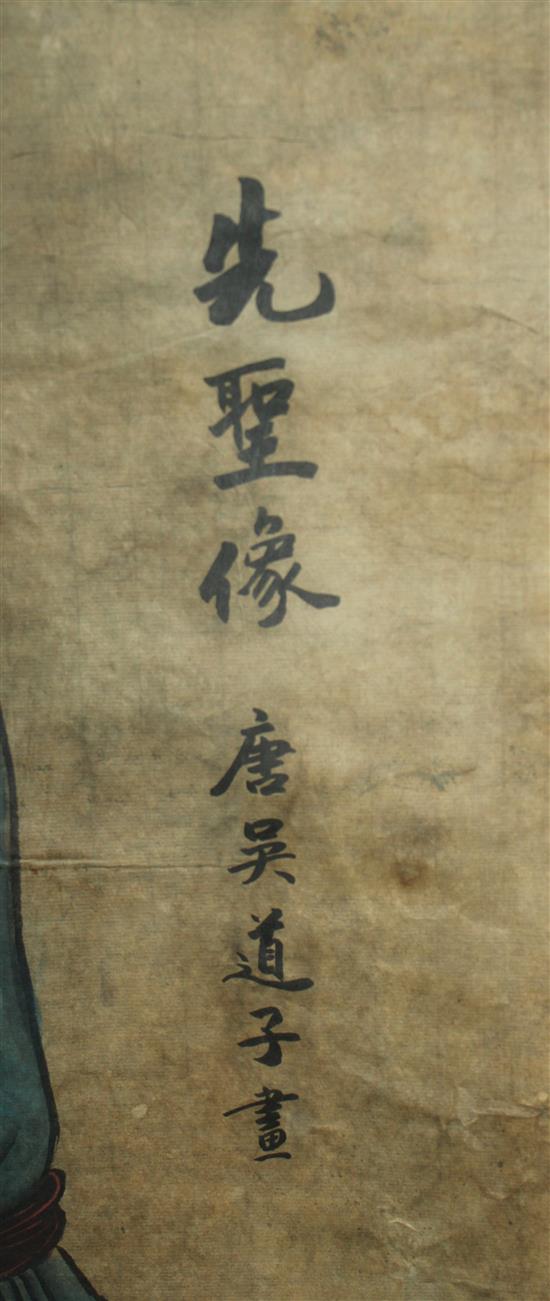 先聖像 唐吳道子畫